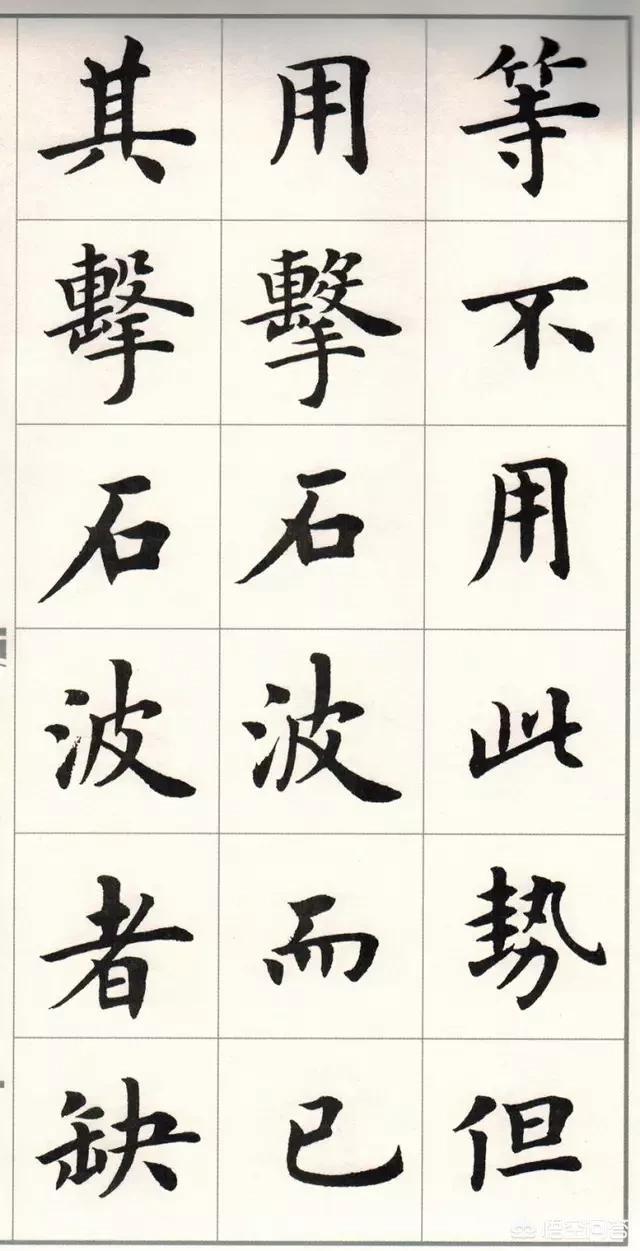 等不用此勢但
用擊石波而已
其擊石波者缺
悟空问答